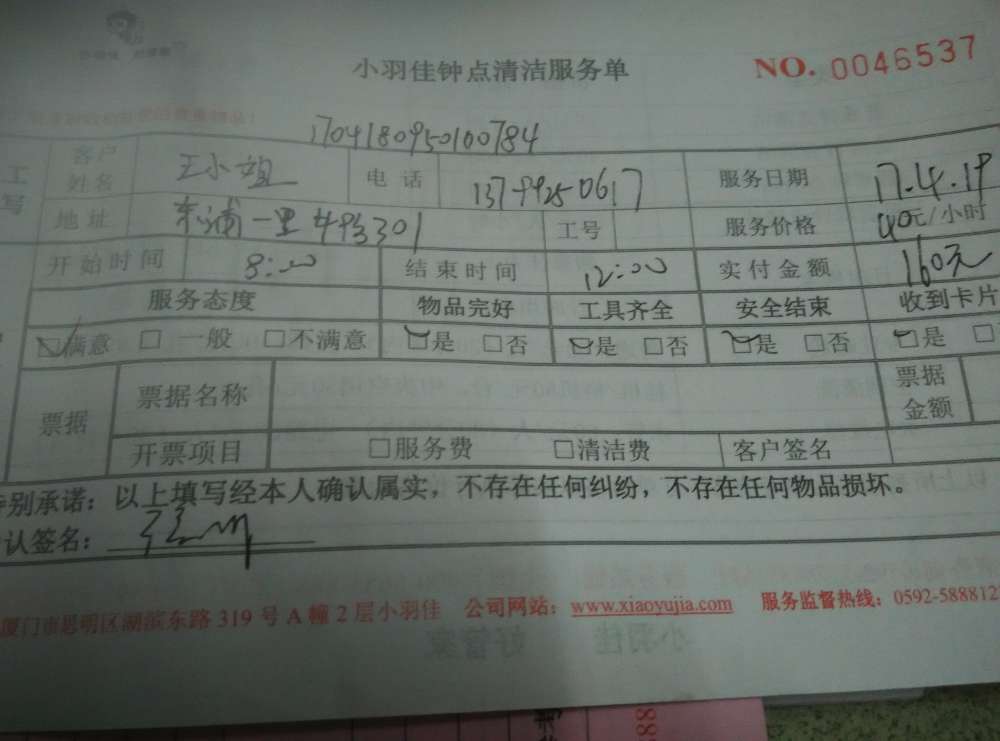 小羽佳钟点清洁服务单 NO. 0046537
1704180950100784
工 客户姓名 王小姐 电 话 13799250617 服务日期 17.4.19
写 地 址 东浦一里 301 工号 服务价格 40元/小时
开始时间 8:00 结束时间 12:00 实付金额 160元
服务态度 物品完好 工具齐全 安全结束 收到卡片
☑满意 □ 一般 □不满意 ☑是 □否 ☑是 □否 ☑是 □否 ☑是 □
票据 票据名称 票据金额
开票项目 □服务费 □清洁费 客户签名
别承诺：以上填写经本人确认属实，不存在任何纠纷，不存在任何物品损坏。
认签名：
厦门市思明区湖滨东路 319 号 A 幢 2 层小羽佳 公司网站：www.xiaoyujia.com 服务监督热线：0592-588812